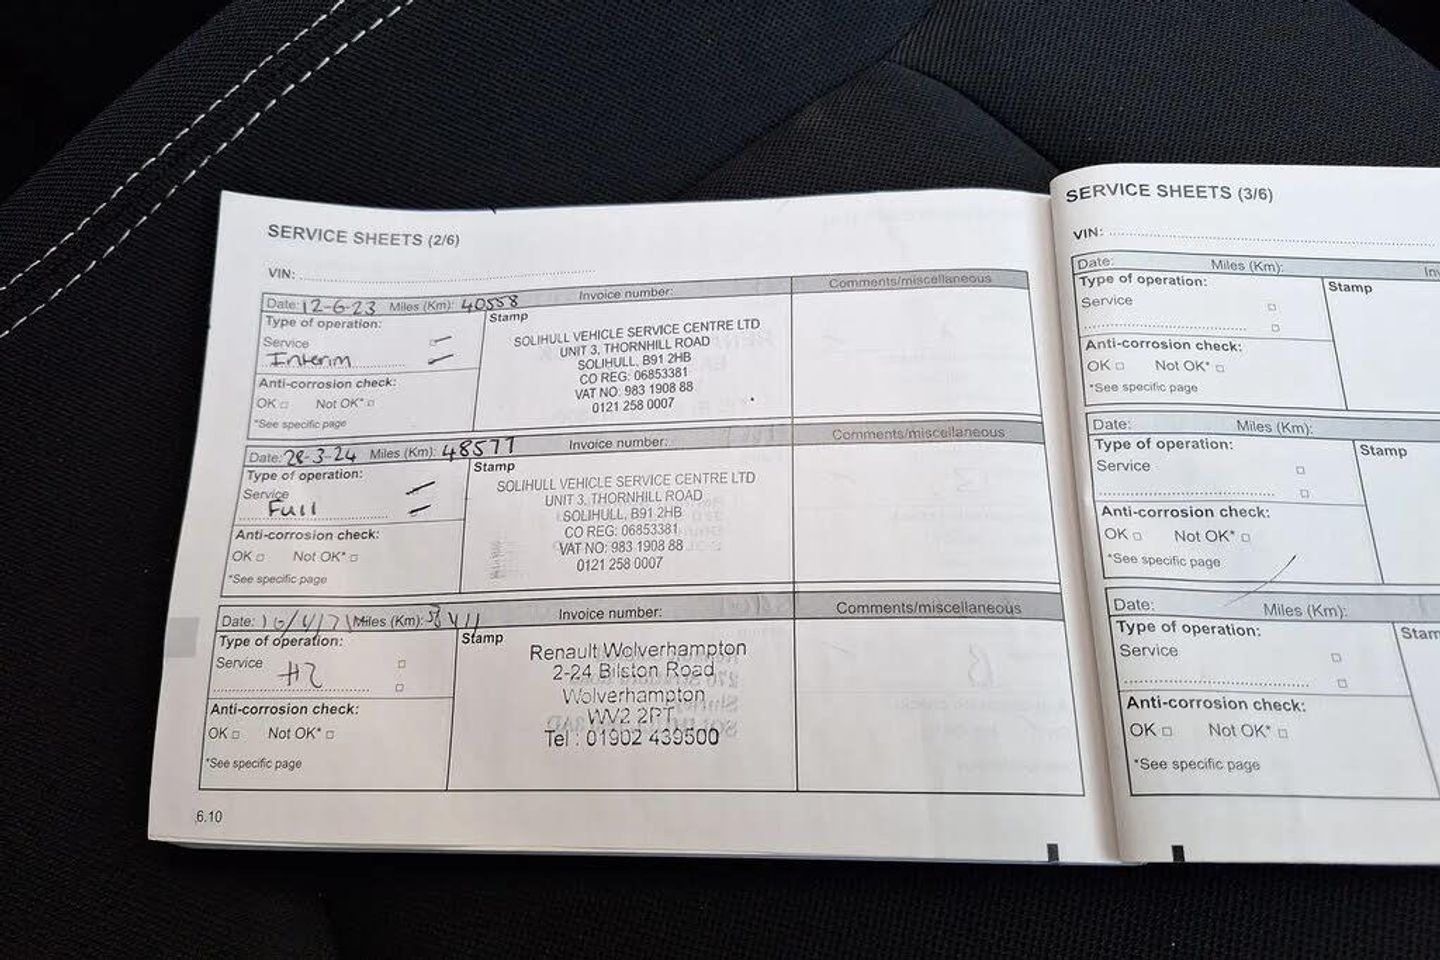 SERVICE SHEETS (2/6)
VIN:
Date: 12-6-23 Miles (Km): 40558 Invoice number: Comments/miscellaneous
Type of operation: Stamp
Service
Interim
Anti-corrosion check:
OK Not OK*
*See specific page
SOLIHULL VEHICLE SERVICE CENTRE LTD
UNIT 3, THORNHILL ROAD
SOLIHULL, B91 2HB
CO REG: 06853381
VAT NO: 983 1908 88
0121 258 0007
Date: 28-3-24 Miles (Km): 48577 Invoice number: Comments/miscellaneous
Type of operation: Stamp
Service
Full
Anti-corrosion check:
OK Not OK*
*See specific page
SOLIHULL VEHICLE SERVICE CENTRE LTD
UNIT 3, THORNHILL ROAD
SOLIHULL, B91 2HB
CO REG: 06853381
VAT NO: 983 1908 88
0121 258 0007
Date: Miles (Km): Invoice number: Comments/miscellaneous
Type of operation: Stamp
Service
#2
Anti-corrosion check:
OK Not OK*
*See specific page
Renault Wolverhampton
2-24 Bilston Road
Wolverhampton
WV2 2PT
Tel : 01902 439500
6.10
SERVICE SHEETS (3/6)
VIN:
Date: Miles (Km): In
Type of operation: Stamp
Service
Anti-corrosion check:
OK Not OK*
*See specific page
Date: Miles (Km):
Type of operation: Stamp
Service
Anti-corrosion check:
OK Not OK*
*See specific page
Date: Miles (Km):
Type of operation: Stam
Service
Anti-corrosion check:
OK Not OK*
*See specific page